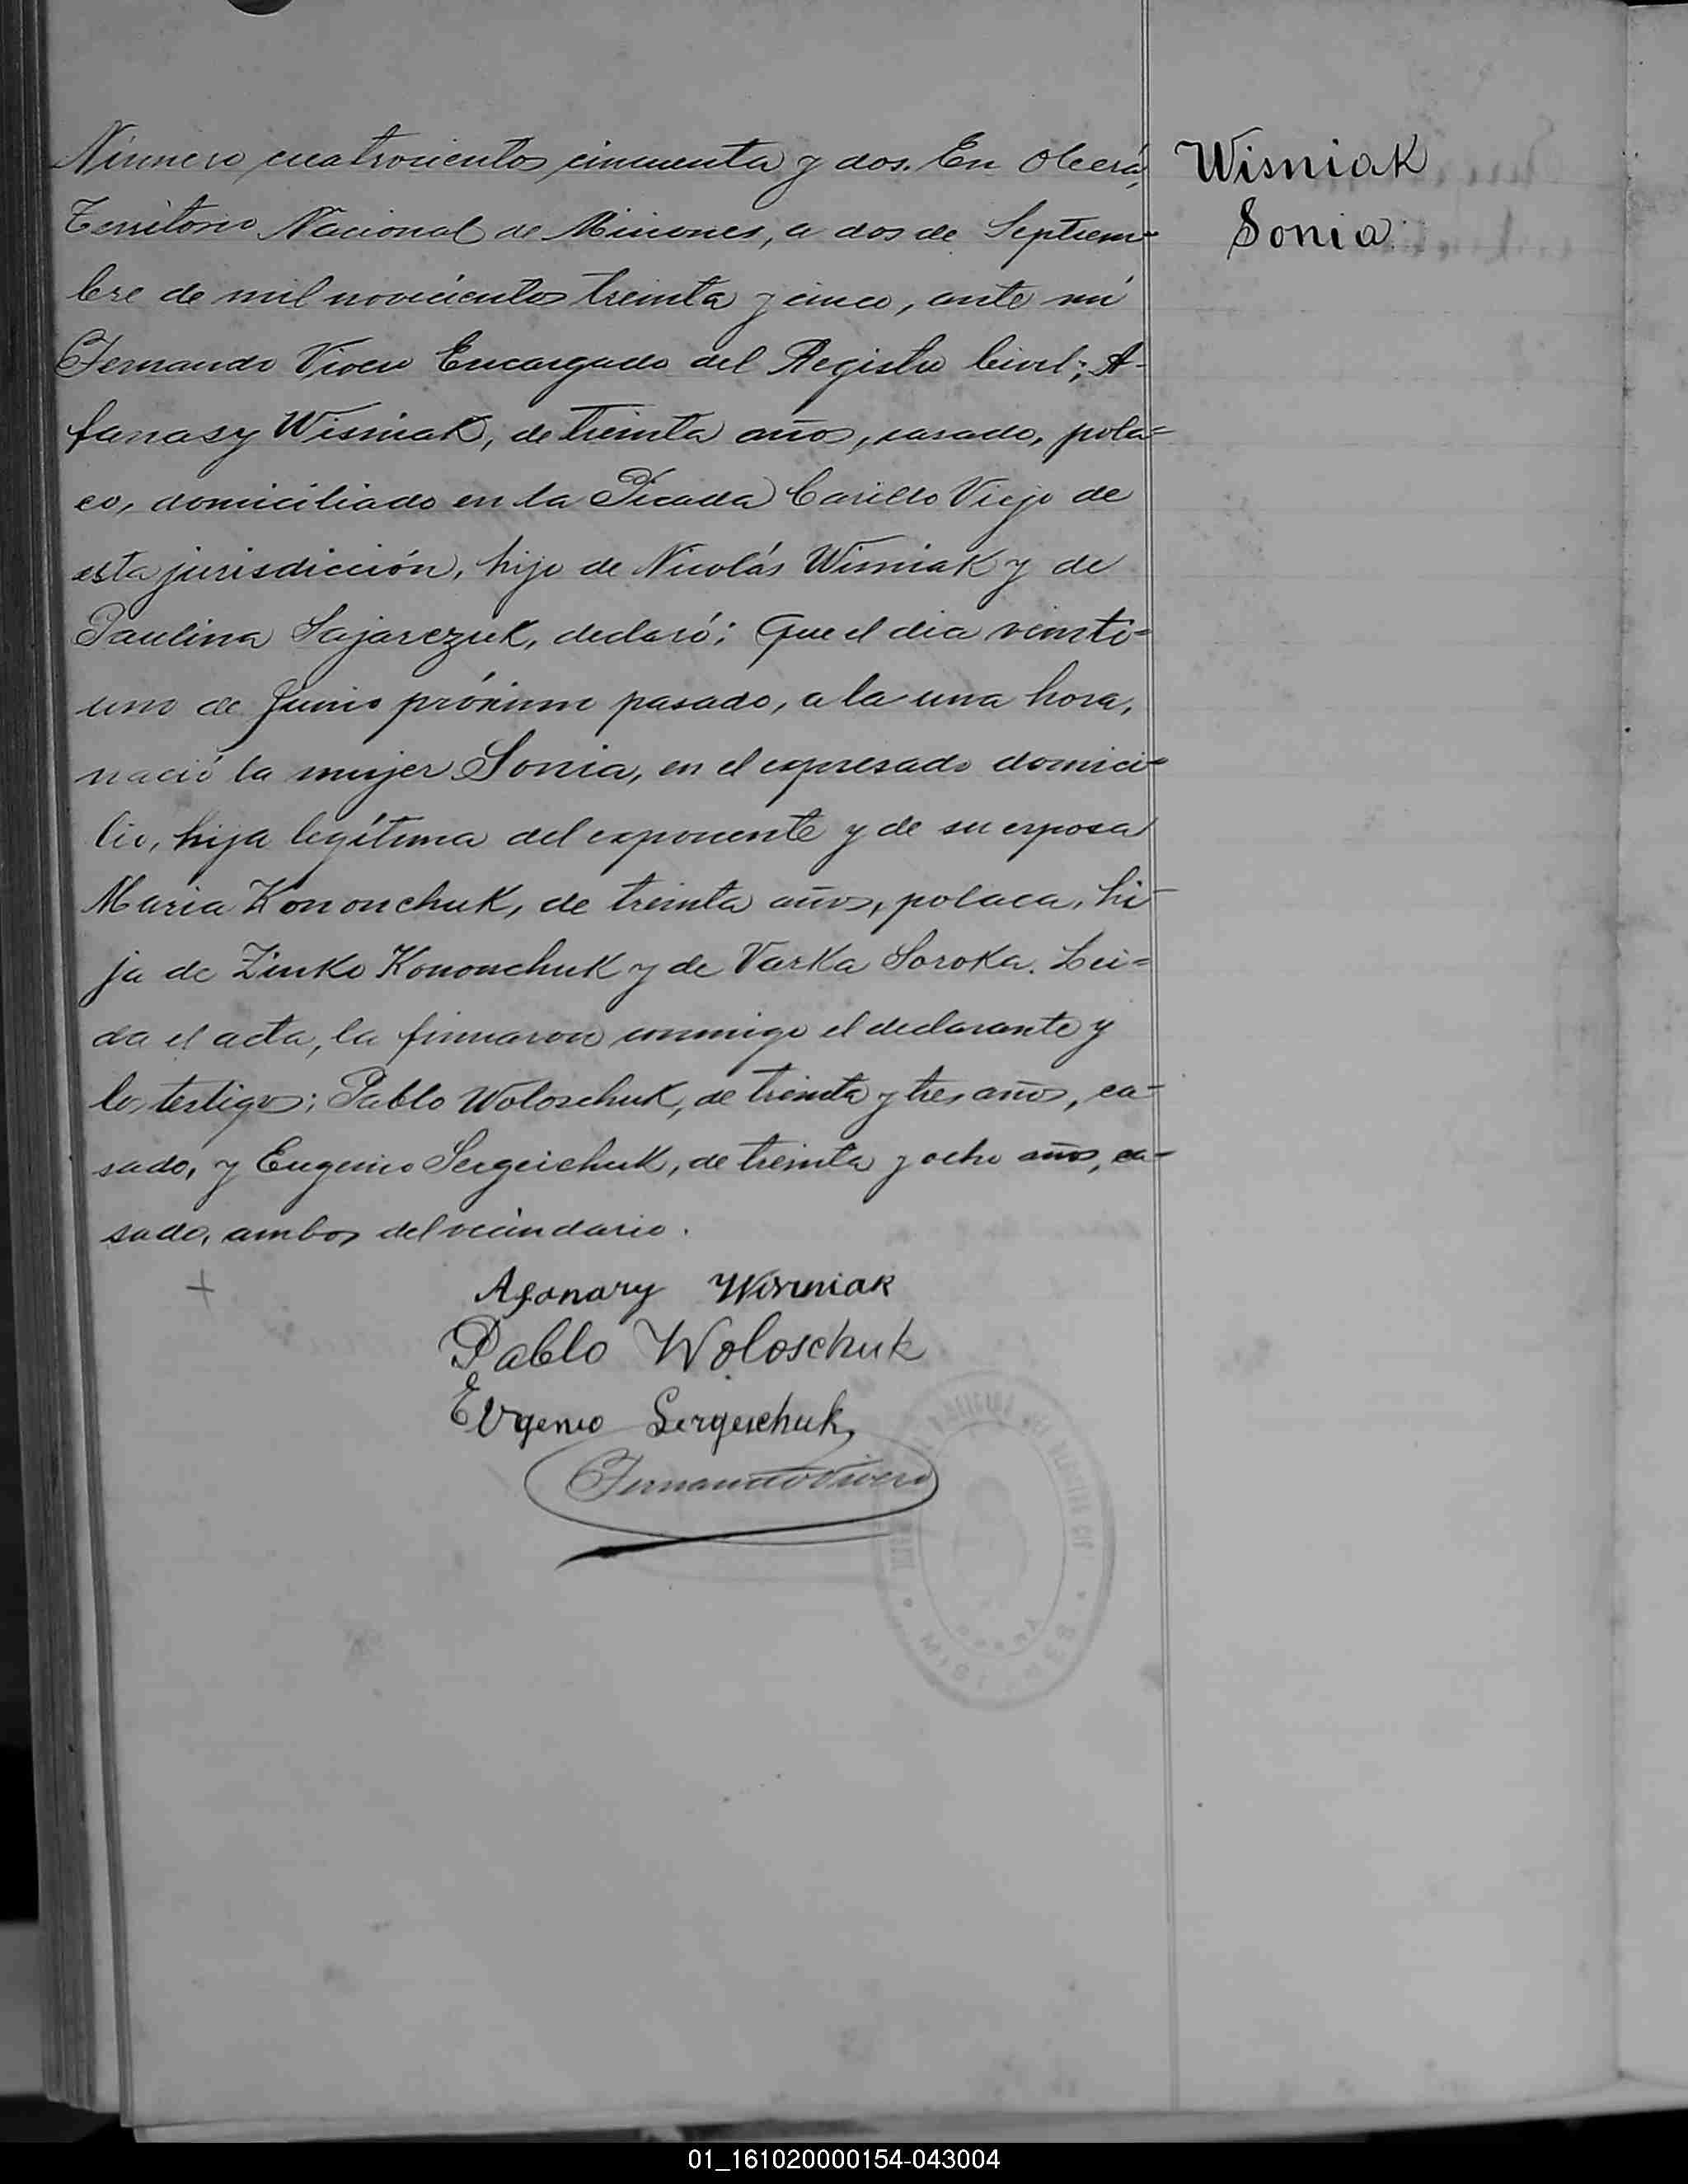 Número cuatrocientos cincuenta y dos. En Oberá,
Territorio Nacional de Misiones, a dos de Septiem=
bre de mil novecientos treinta y cinco, ante mí
Fernando Vivero Encargado del Registro Civil; A-
fanasy Wisniak, de treinta años, casado, pola=
co, domiciliado en la Picada Carillo Viejo de
esta jurisdicción, hijo de Nicolás Wisniak y de
Paulina Sajarczuk, declaró: Que el día veinti=
uno de Junio próximo pasado, a la una hora,
nació la mujer Sonia, en el expresado domici=
lio, hija legítima del exponente y de su esposa
Maria Kononchuk, de treinta años, polaca, hi-
ja de Zinko Kononchuk y de Varka Soroka. Leí=
da el acta, la firmaron conmigo el declarante y
los testigos; Pablo Woloschuk, de treinta y tres años, ca-
sado, y Eugenio Sergeichuk, de treinta y ocho años, ca-
sado, ambos del vecindario.
Afanasy Wisniak
Pablo Woloschuk
Evgenio Sergeichuk
Fernando Vivero
Wisniak
Sonia
01_161020000154-043004